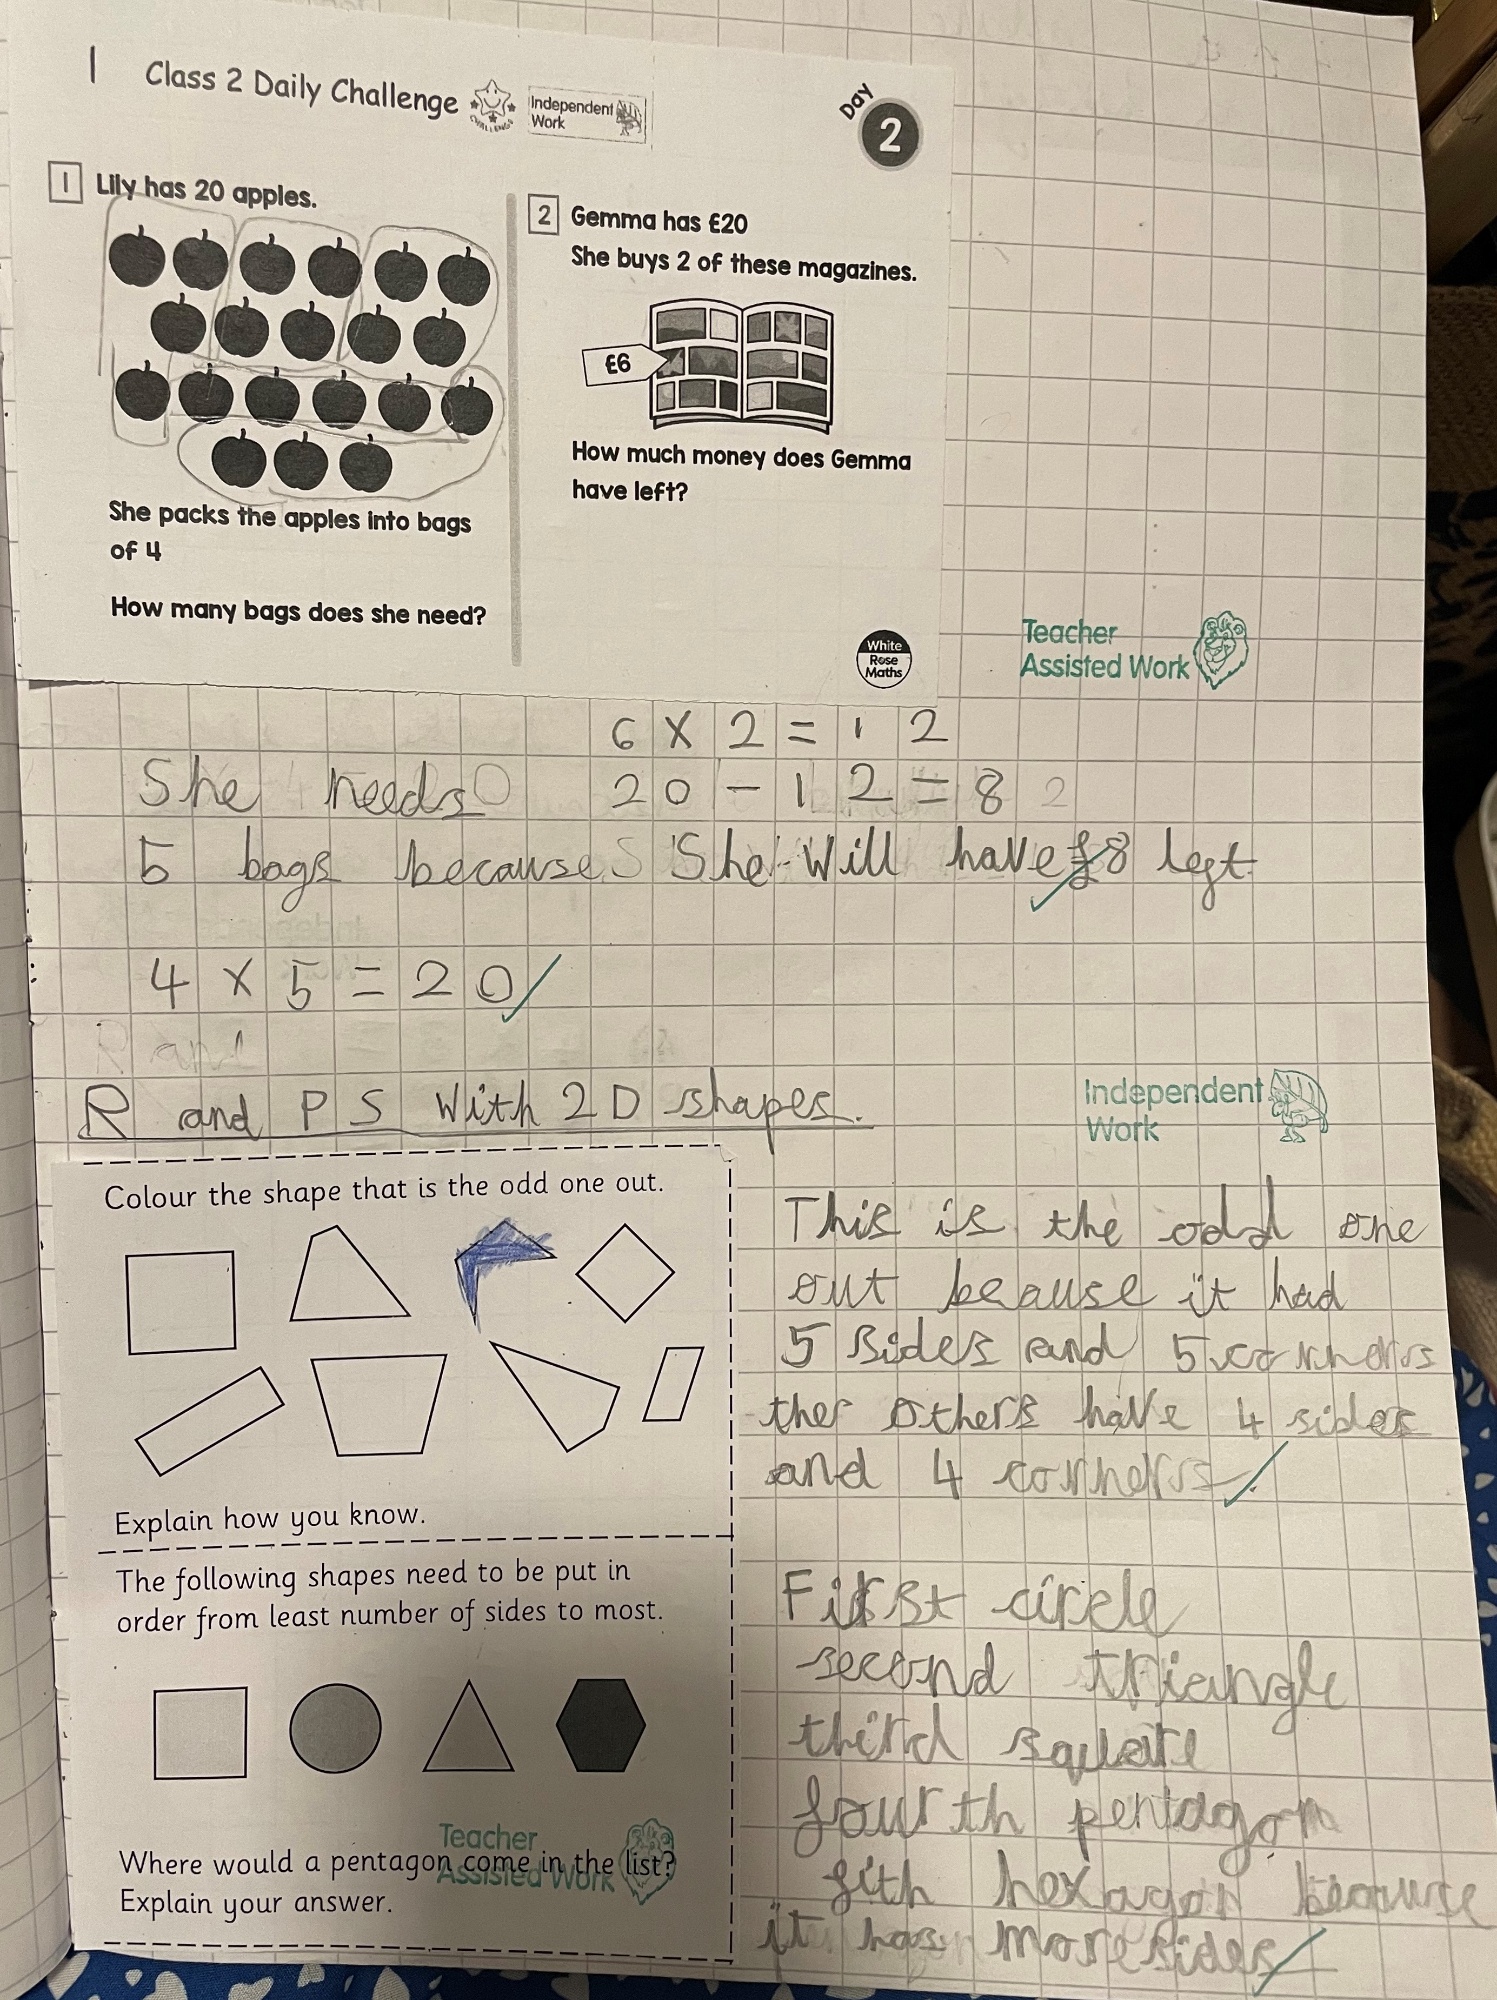 1 Class 2 Daily Challenge
CHALLENGE
Independent
Work
Day
2
1 Lily has 20 apples.
She packs the apples into bags
of 4
How many bags does she need?
2 Gemma has £20
She buys 2 of these magazines.
£6
How much money does Gemma
have left?
White
Rose
Maths
Teacher
Assisted Work
6 x 2 = 12
20 - 12 = 8 2
She will have £8 left
She needs
5 bags because
4 x 5 = 20
R and
R and P S With 2D shapes.
Independent
Work
Colour the shape that is the odd one out.
Explain how you know.
This is the odd one
out beause it had
5 sides and 5 corners
ther others have 4 sides
and 4 corners
The following shapes need to be put in
order from least number of sides to most.
Teacher
Assisted Work
Where would a pentagon come in the list?
Explain your answer.
First circle
second triangle
third square
fourth pentagon
fith hexagon because
it has more sides